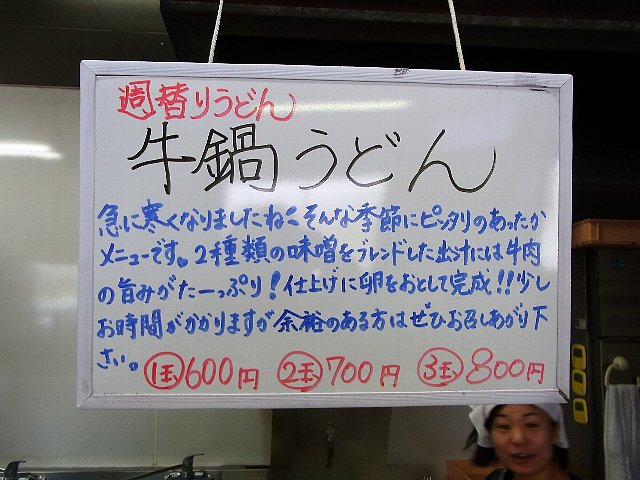 週替りうどん
牛鍋うどん
急に寒くなりましたねぇそんな季節にピッタリのあったか
メニューです。2種類の味噌をブレンドした出汁には牛肉
の旨みがたーっぷり！仕上げに卵をおとして完成!!少し
お時間がかかりますが余裕のある方はぜひお召しあがり下
さい。 1玉600円 2玉700円 3玉800円